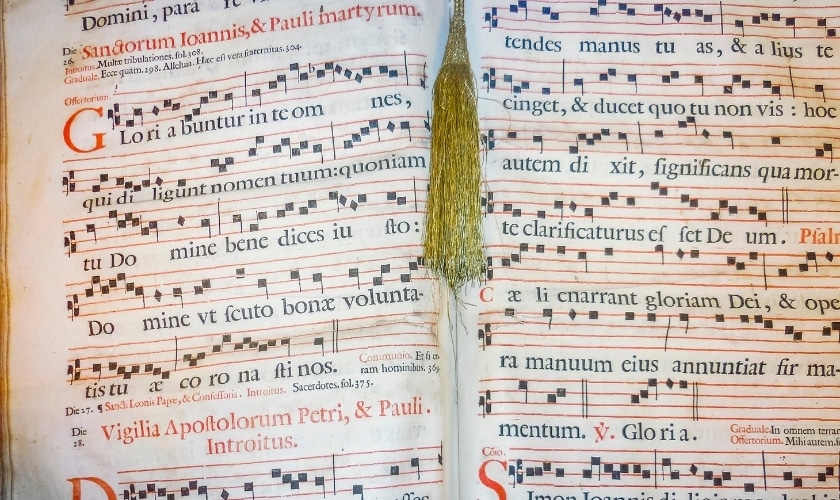 Domini, para
Die 26. Sanctorum Ioannis, & Pauli martyrum.
Introitus. Multæ tribulationes. fol. 308.
Graduale. Ecce quam. 298. Alleluia. Hæc est vera fraternitas. 304.
Offertorium.
GLo ri a buntur in te om nes,
qui di ligunt nomen tuum: quoniam
tu Do mine bene dices iu ſto:
Do mine vt ſcuto bonæ volunta-
tis tu æ co ro na ſti nos.
Communio. Et ſi co-
ram hominibus. 369.
Die 27. ¶ Sancti Leonis Papæ, & Confeſſoris. Introitus. Sacerdotes. fol. 375.
Die 28. Vigilia Apoſtolorum Petri, & Pauli.
Introitus.
D
tendes manus tu as, & a lius te
cinget, & ducet quo tu non vis : hoc
autem di xit, ſignificans qua mor-
te clarificaturus eſ ſet De um. Pſalm
C æ li enarrant gloriam Dei, & ope
ra manuum eius annuntiat fir ma-
mentum. ℣. Glo ri a.
Graduale. In omnem terram
Offertorium. Mihi autem.
Cōio.
S Imon Ioannis di